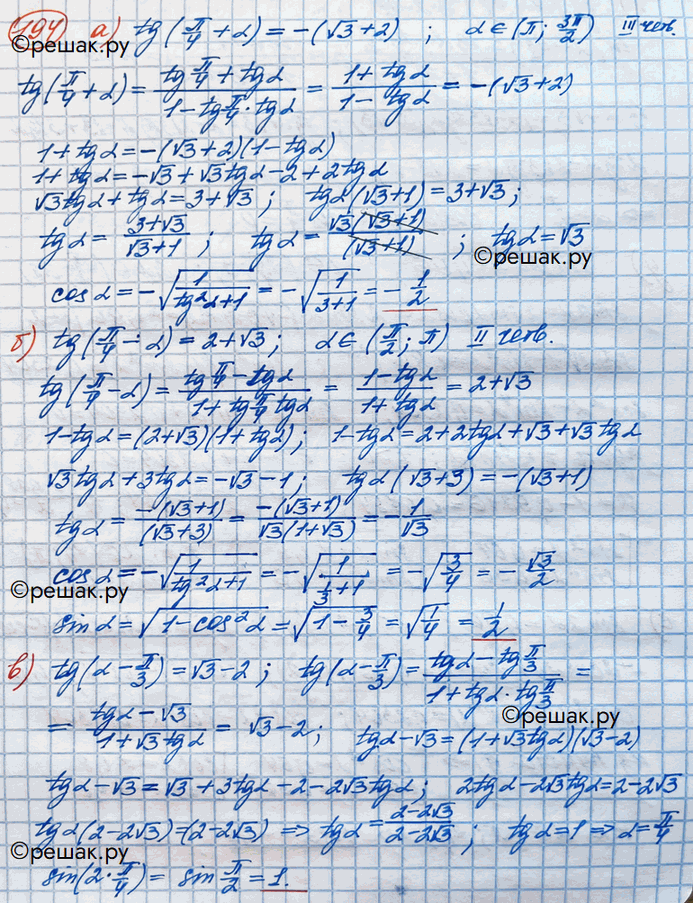 194 а) tg(π/4 + α) = -(√3+2) ; α ∈ (π; 3π/2) III чет.
©решак.ру
tg(π/4 + α) = (tg π/4 + tgα)/(1 - tg π/4 · tgα) = (1 + tgα)/(1 - tgα) = -(√3+2)
1 + tgα = -(√3+2)(1 - tgα)
1 + tgα = -√3 + √3tgα - 2 + 2tgα
√3tgα + tgα = 3+√3 ; tgα(√3+1) = 3+√3 ;
tgα = (3+√3)/(√3+1) ; tgα = √3(√3+1)/(√3+1) ; tgα = √3
©решак.ру
cosα = -√(1/(tg²α+1)) = -√(1/(3+1)) = -1/2
©решак.ру
б) tg(π/4 - α) = 2+√3 ; α ∈ (π/2; π) II четв.
tg(π/4 - α) = (tg π/4 - tgα)/(1 + tg π/4 tgα) = (1 - tgα)/(1 + tgα) = 2+√3
1 - tgα = (2+√3)(1 + tgα) ; 1 - tgα = 2 + 2tgα + √3 + √3tgα
√3tgα + 3tgα = -√3 - 1 ; tgα(√3+3) = -(√3+1)
tgα = -(√3+1)/(√3+3) = -(√3+1)/√3(1+√3) = -1/√3
cosα = -√(1/(tg²α+1)) = -√(1/(1/3+1)) = -√(3/4) = -√3/2
©решак.ру
sinα = √(1 - cos²α) = √(1 - 3/4) = √(1/4) = 1/2
в) tg(α - π/3) = √3 - 2 ; tg(α - π/3) = (tgα - tg π/3)/(1 + tgα · tg π/3) =
©решак.ру
= (tgα - √3)/(1 + √3tgα) = √3 - 2 ; tgα - √3 = (1 + √3tgα)(√3 - 2)
tgα - √3 = √3 + 3tgα - 2 - 2√3tgα ; 2tgα - 2√3tgα = 2 - 2√3
tgα(2 - 2√3) = (2 - 2√3) ⇒ tgα = (2 - 2√3)/(2 - 2√3) ; tgα = 1 ⇒ α = π/4
©решак.ру
sin(2 · π/4) = sin π/2 = 1.